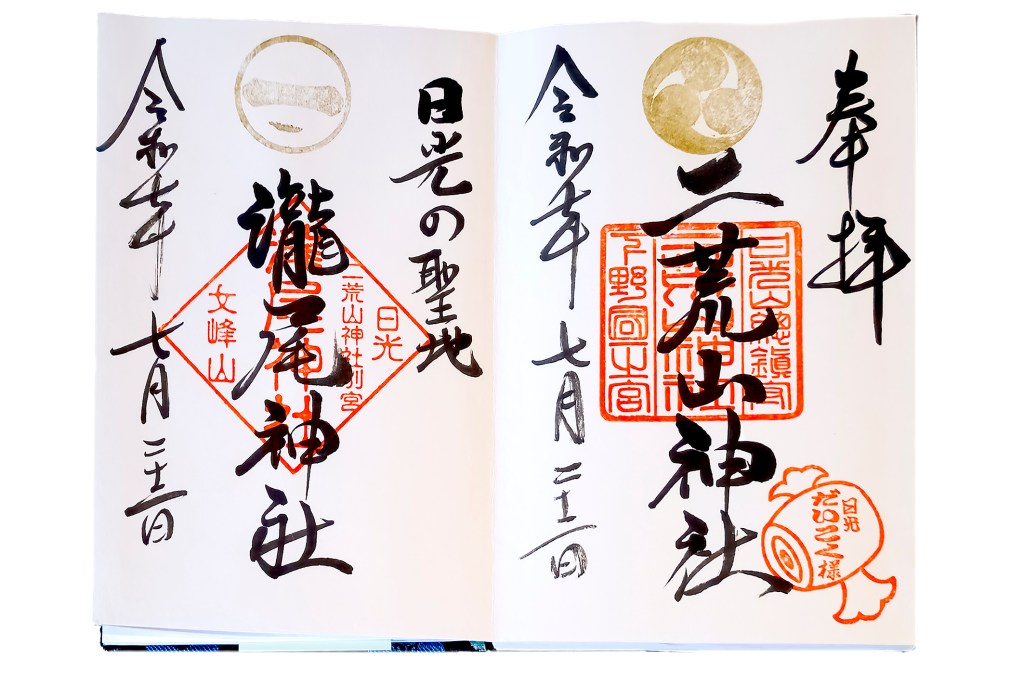 奉拝
二荒山神社
日光山總鎮守
二荒山神社
下野國一之宮
日光
だいこく様
令和七年 七月 二十二日
日光の聖地
一
瀧尾神社
日光
二荒山神社別宮
瀧尾神社
女峰山
令和七年 七月二十二日